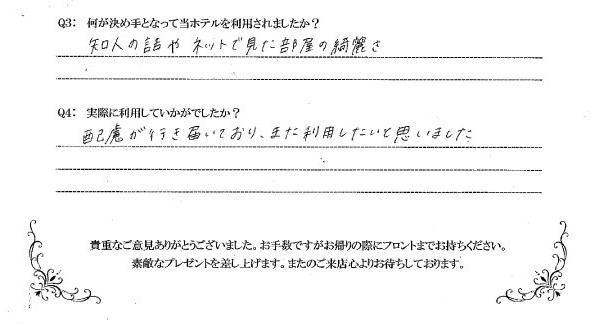 Q3: 何が決め手となって当ホテルを利用されましたか？
知人の話や ネットで見た部屋の綺麗さ
Q4: 実際に利用していかがでしたか？
配慮が行き届いており、また利用したいと思いました
貴重なご意見ありがとうございました。お手数ですがお帰りの際にフロントまでお持ちください。
素敵なプレゼントを差し上げます。またのご来店心よりお待ちしております。